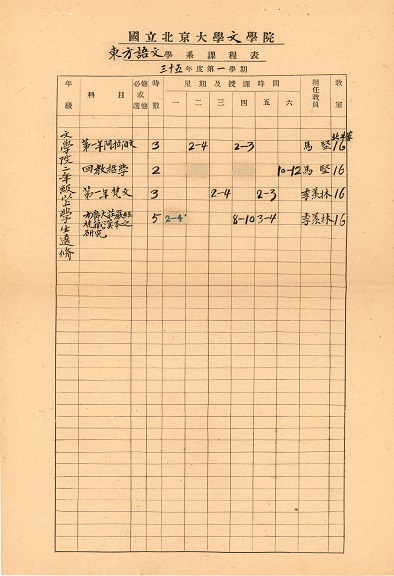 國立北京大學文學院
東方語文學系課程表
三十五年度第一學期
年級 科目 必修或選修 時數 星期及授課時間 擔任教員 教室
一 二 三 四 五 六
文學院二年級以上學生選修
第一年阿拉伯文 3 2-4 2-3 馬堅 北樓16
回教哲學 2 10-12 馬堅 16
第一年梵文 3 2-4 2-3 季羨林 16
方廣大莊嚴經
梵藏漢本之
研究 5 2-4 8-10 3-4 季羨林 16